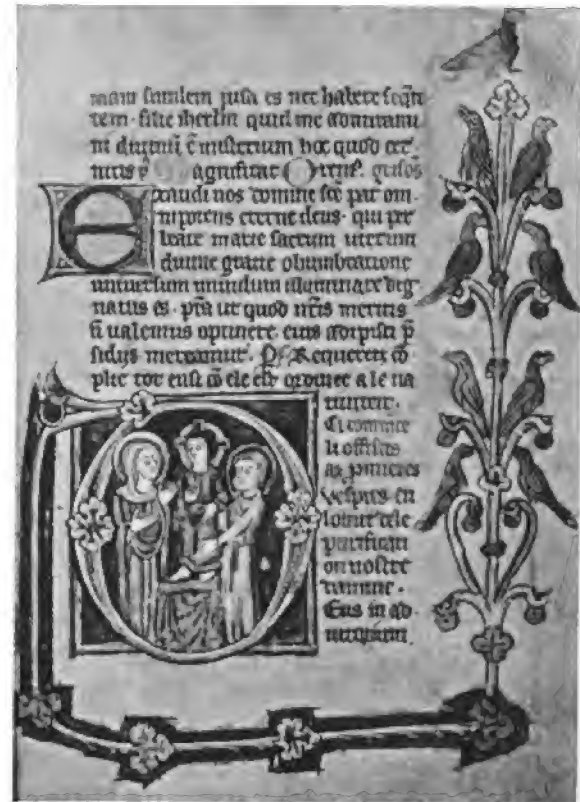 mam similem visa es nec habere sequen
tem. filie iherlm quid me admirami
ni diuinū ē misterium hoc quod cer
nitis p̄ Magnificat Orens. quesos
Exaudi nos domine sc̄e pat om
nipotens eterne deus. qui per
beate marie sacrum uterum
diuine gratie obumbratione
uniuersum mundum illuminare dig
natus es. p̄ta ut quod nr̄is meritis
n̄ ualemus optinere. eius adepisci p̄
sidijs mereamur. P̄. Requerez cō
plie tot ensi cō ele est ordinee a le na
tiuitet.
Ci commēce
li offisces
as primieres
vespres en
lonnr dele
purificati
on nostre
damme.
Eus in ad
iutorium